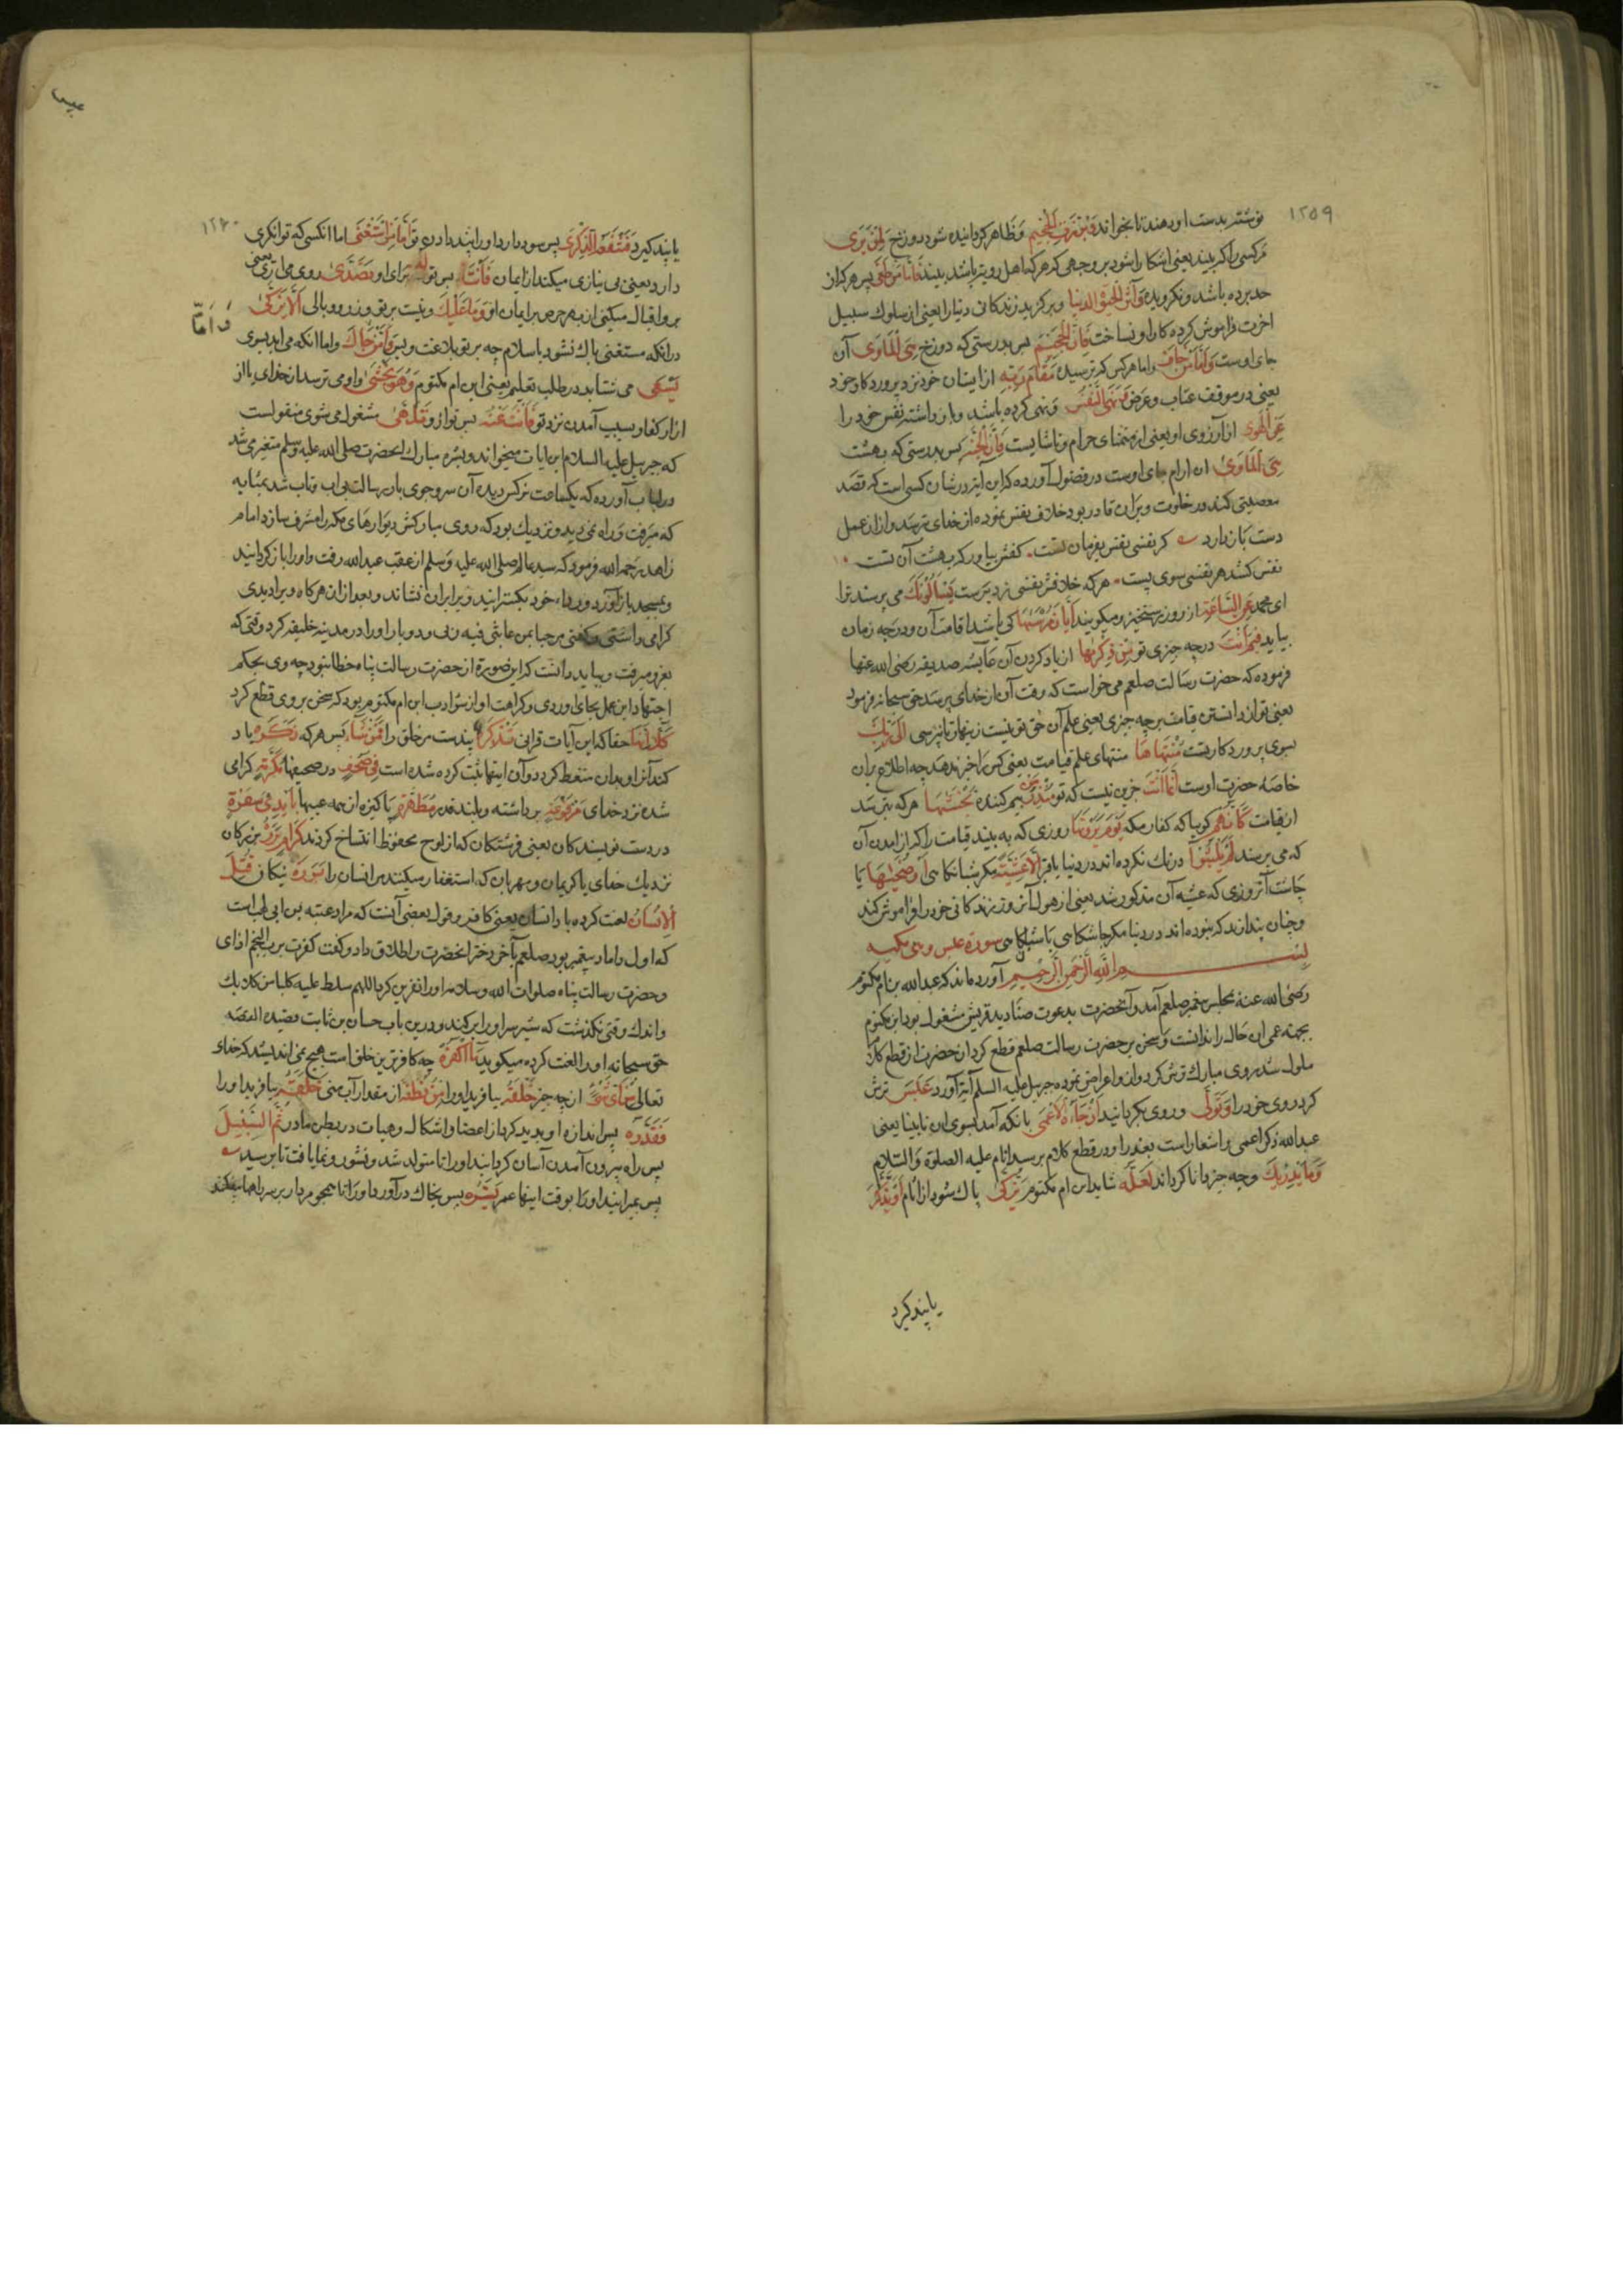 ۱۲۵۹
نوشته بدست او دهند تا بخواند وَبُرِّزَتِ الْجَحِيمُ و ظاهر گردانیده شود دوزخ لِمَنْ يَرَى
مرکسی را که بیند یعنی اشکارا شود بر وجهی که هر که اهل رویت باشد بیند فَأَمَّا مَنْ طَغَى پس هر که از
حد برده باشد و نکرویده وَآثَرَ الْحَيَوةَ الدُّنْيَا و برگزید زندکانی دنیا را یعنی از سلوک سبیل
اخرت فراموش کرده کار او نساخت فَإِنَّ الْجَحِيمَ پس بدرستی که دوزخ هِيَ الْمَأْوَى آن
جای اوست وَأَمَّا مَنْ خَافَ و اما هر کس که ترسیده مَقَامَ رَبِّهِ از ایستان خود نزد پروردکار خود
یعنی در موقف عتاب و عرض وَنَهَى النَّفْسَ و نهی کرده باشد و باز داشته نفس خود را
عَنِ الْهَوَى از آرزوی او یعنی از متمنای حرام و ناشایست فَإِنَّ الْجَنَّةَ پس بدرستی که بهشت
هِيَ الْمَأْوَى ان ارام جای اوست در فصول آورده که این آیة در شان کسی است که قصد
معصیتی کند در خلوت و بران قادر بود خلاف نفس نموده از خدای بترسد و از ان عمل
دست باز دارد کر نفسی نفس بفرمان تست کفش بیاور که بهشت آن تست
نفس کشد هر نفسی سوی پست هر که خلافش نفسی زد برست يَسْأَلُونَكَ می پرسند ترا
ای محمد عَنِ السَّاعَةِ از روز رستخیز و میکویند أَيَّانَ مُرْسَيهَا کی باشد اقامت آن و درچه زمان
بیاید فِيمَ أَنْتَ درچه چیزی تو مِنْ ذِكْرَيهَا از یاد کردن آن عایشه صدیقه رضی الله عنها
فرموده که حضرت رسالت صلعم می خواست که وقت آن از خدای پرسد حق سبحانه فرمود
یعنی تو از دانستن قیامت بر چه چیزی یعنی علم آن حق تو نیست زینهار تا نپرسی إِلَى رَبِّكَ
بسوی پروردکار تست مُنْتَهَاهَا منتهای علم قیامت یعنی کس را خبر ندهد چه اطلاع بران
خاصه حضرت اوست إِنَّمَا أَنْتَ جزین نیست که تو مُنْذِرُ مَنْ بیم کننده يَخْشَيهَا هر که بترسد
از قیامت كَأَنَّهُمْ کویا که کفار مکه يَوْمَ يَرَوْنَهَا روزی که به بیند قیامت را که از امدن آن
که می پرسند لَمْ يَلْبَثُوا درنک نکرده اند در دنیا یا قبر إِلَّا عَشِيَّةً مکر شبانکاهی أَوْ ضُحَيهَا یا
چاشت آن روزی که عشیه آن مذکور شد یعنی از هول آن روز زندکانی خود را فراموش کند
و چنان پندارند که نبوده اند در دنیا مکر چاشتکاهی یا شبانکاهی سورة عبس وهی مکیه
بسم الله الرحمن الرحیم آورده اند که عبدالله بن ام مکتوم
رضی الله عنه بمجلس پیغمبر صلعم آمد و آنحضرت بدعوت صنادید قریش مشغول بود ابن مکتوم
بجهة عمی ان حال را ندانست و سخن بر حضرت رسالت صلعم قطع کرد ان حضرت از قطع کلام
ملول شد روی مبارک ترش کرد و از و اعراض نموده جبریل علیه السلم آیة آورد عَبَسَ ترش
کرد روی خود را وَتَوَلَّى و روی بگردانید أَنْ جَاءَهُ الْأَعْمَى بانکه آمد بسوی ان نابینا یعنی
عبدالله ذکر اعمی را اشعار است بعذر او در قطع کلام بر سید انام علیه الصلوة والسلام
وَمَا يُدْرِيكَ و چه چیز دانا کرداند لَعَلَّهُ شاید ابن ام مکتوم يَزَّكَّى پاک شود از اثام أَوْ يَذَّكَّرُ
یا پند کیرد
۱۲۶۰
یا پند کیرد فَتَنْفَعَهُ الذِّكْرَى پس سود دارد او را پند دادن تو أَمَّا مَنِ اسْتَغْنَى اما انکسی که توانکری
دارد یعنی بی نیازی میکند از ایمان فَأَنْتَ پس تو لَهُ برای او تَصَدَّى روی می اری یعنی
برو اقبال میکنی از بهر حرص بر ایمان او وَمَا عَلَيْكَ و نیست بر تو وزر و وبالی أَلَّا يَزَّكَّى
درانکه مستغنی پاک نشود باسلام چه بر تو بلاغت و بس وَأَمَّا مَنْ جَاءَكَ و اما انکه می اید بسوی
وَأَمَّا
يَسْعَى می شتابد در طلب تعلم یعنی ابن ام مکتوم وَهُوَ يَخْشَى و او می ترسد از خدای یا از
ازار کفار بسبب آمدن نزد تو فَأَنْتَ عَنْهُ پس تو ازو تَلَهَّى مشغول می شوی منقولست
که جبریل علیه السلام این ایات میخواند و بشره مبارک انحضرت صلی الله علیه وسلم متغیر می شد
که میرفت و راه نمی دید و نزدیک بود که روی مبارکش دیوارهای مکه را مشرف سازد امام
زاهد رحمه الله فرمود که سید عالم صلی الله علیه وسلم از عقب عبدالله رفت و او را باز کردانید
و بمسجد باز آورد و رداء خود بکسترانید و بر ان نشاند و بعد از ان هر کاه ویرا دیدی
کرامی داشتی و کفتی مرحبا بمن عاتبنی فیه ربی و دو بار او را در مدینه خلیفه کرد وقتی که
بغزو میرفت و بباید دانست که این صورة از حضرت رسالت پناه خطا نبود چه وی بحکم
اجتهاد این عمل بجای اوردی و کراهت او از سؤ ادب ابن ام مکتوم بود که سخن بر وی قطع کرد
كَلَّا إِنَّهَا حقا که این آیات قرانی تَذْكِرَةٌ پندست مر خلق را فَمَنْ شَاءَ پس هر که ذَكَرَهُ یاد
کند آنرا و بدان متعظ کردد و آن ایتها ثبت کرده شده است فِي صُحُفٍ در صحیفها مُكَرَّمَةٍ کرامی
شده نزد خدای مَرْفُوعَةٍ برداشته و بلند قدر مُطَهَّرَةٍ پاکیزه از همه عیبها بِأَيْدِي سَفَرَةٍ
در دست نویسندکان یعنی فرشتکان که از لوح محفوظ انتساخ کردند كِرَامٍ بَرَرَةٍ بزرکان
نزدیک خدای یا کریمان و مهربان که استغفار میکنند مر انسان را بَرَرَةٍ نیکان قُتِلَ
الْإِنْسَانُ لعنت کرده باد انسان یعنی کافر و قول بعضی آنست که مراد عتبه بن ابی لهب است
که اول داماد پیغمبر بود صلعم بآخر دختر انحضرت را طلاق داد و کفت کفرت برب النجم اذای
وحضرت رسالت پناه صلوات الله وسلامه او را نفرین کرد اللهم سلط علیه کلبا من کلابک
و اندک وقتی نکذشت که شیر سر او را بر کیند و درین باب حسان بن ثابت قصیده القصه
حق سبحانه او را لعنت کرده میکوید مَا أَكْفَرَهُ چه کافرترین خلق است هیچ نمی اندیشد که خدای
تعالی مِنْ أَيِّ شَيْءٍ از چه چیز خَلَقَهُ بیافرید او را مِنْ نُطْفَةٍ از مقدار آب منی خَلَقَهُ بیافرید او را
فَقَدَّرَهُ پس اندازه او پدید کرد از اعضا و اشکال و هیات در بطن مادر ثُمَّ السَّبِيلَ
پس راه بیرون آمدن آسان کردانید او را تا متولد شد و نشو و نما یافت تا برسید
پس بمیرانید او را بوقت اینها عمر يَسَّرَهُ پس بخاک در آورد او را تا همچو مردار بر سر راهها نیفکند